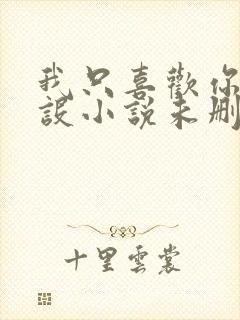 我只喜歡你
設小說未刪
十里雲裳